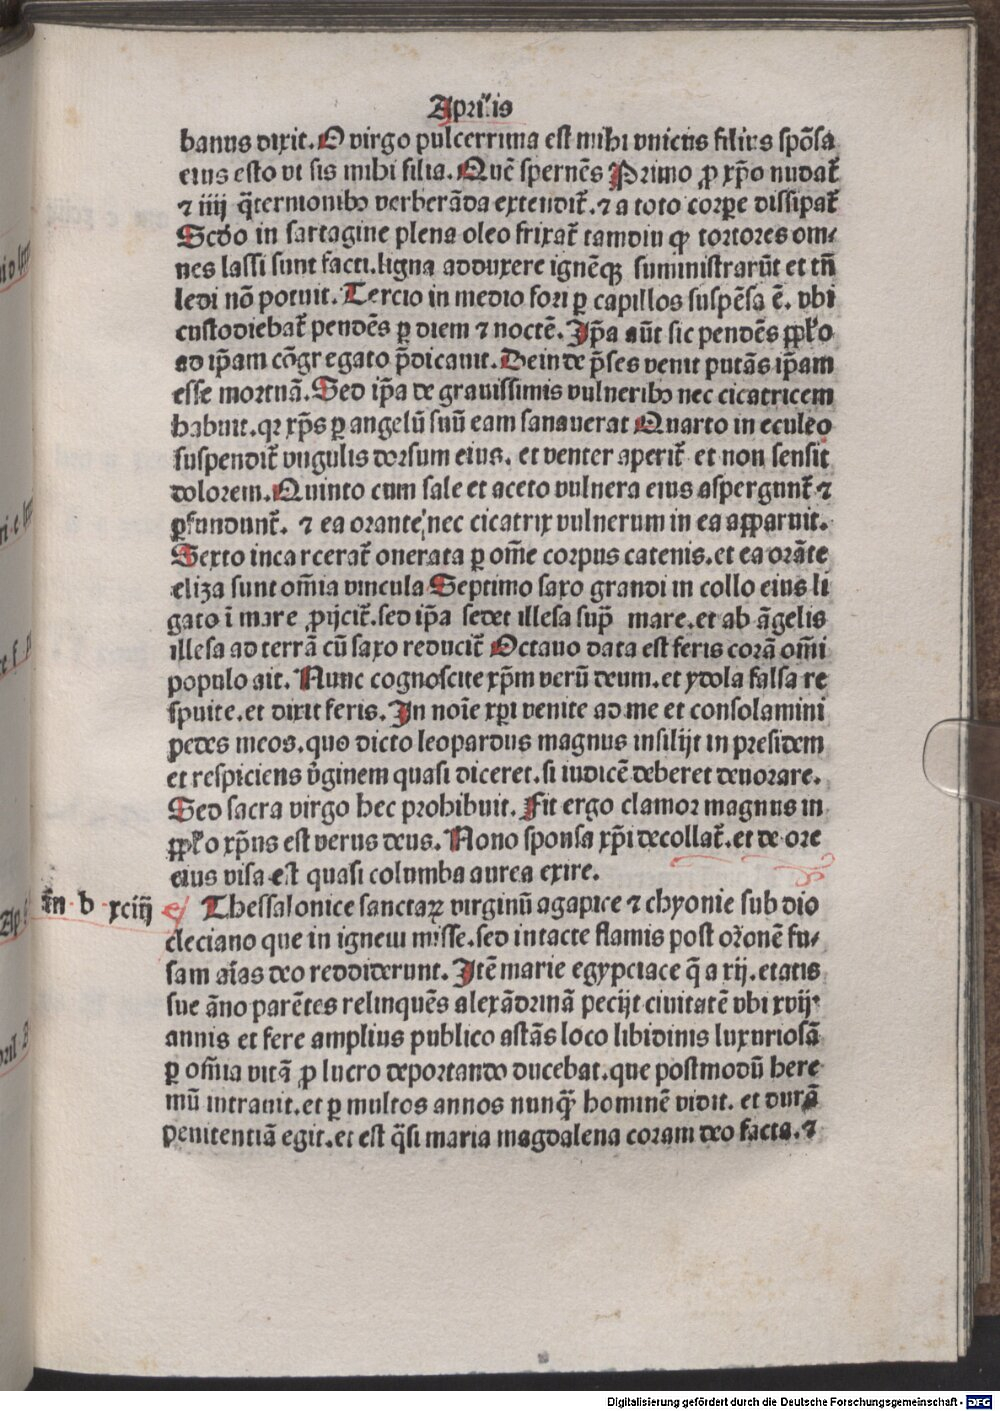 Aprilis
banus dixit. O virgo pulcerrima est mihi vnicus filius spõsa
eius esto vt sis mihi filia. Quē spernēs Primo ꝓ xp̄o nudat᷑
⁊ iiii q̄ternionibꝰ verberāda extendit᷑. ⁊ a toto corpe dissipat᷑
Scďo in sartagine plena oleo frixat᷑ tamdiu ꝙ tortores om⸗
nes lassi sunt facti. ligna adduxere ignēqꝫ suministrarūt et tn̄
ledi nō potuit. Tercio in medio fori ꝑ capillos suspēsa ē. vbi
custodiebat᷑ pendēs ꝑ diem ⁊ noctē. Ip̄a aūt sic pendēs ppl'o
ad ip̄am cōgregato p̄dicauit. Deinde p̄ses venit putās ip̄am
esse mortuā. Sed ip̄a de grauissimis vulneribꝰ nec cicatricem
habuit. qꝛ xp̄s ꝑ angelū suū eam sanauerat Quarto in eculeo
suspendit᷑ vngulis dorsum eius. et venter aperit᷑ et non sensit
dolorem. Quinto cum sale et aceto vulnera eius aspergunt᷑ ⁊
ꝑfundunt᷑. ⁊ ea orante nec cicatrix vulnerum in ea apparuit.
Sexto incarcerat᷑ onerata ꝑ om̄e corpus catenis. et ea orāte
eliza sunt om̄ia vincula Septimo saxo grandi in collo eius li
gato ī mare ꝓijcit᷑. sed ip̄a sedet illesa sup̄ mare. et ab āgelis
illesa ad terrā cū saxo reducit᷑ Octauo data est feris corā om̄i
populo ait. Nunc cognoscite xp̄m verū deum. et ydola falsa re
spuite. et dixit feris. In noīe xp̄i venite ad me et consolamini
pedes meos. quo dicto leopardus magnus insilijt in presidem
et respiciens v̓ginem quasi diceret. si iudicē deberet deuorare.
Sed sacra virgo hec prohibuit. Fit ergo clamor magnus in
ppl'o xp̄nus est verus deus. Nono sponsa xp̄i decollat᷑. et de ore
eius visa est quasi columba aurea exire.
In b xciiij e Thessalonice sanctaꝝ virginū agapice ⁊ chyonie sub dio
cleciano que in ignem misse. sed intacte flamis post or̄onē fu⸗
sam aīas deo reddiderunt. Itē marie egypciace q̄ a xij. etatis
sue āno parētes relinquēs alexādrinā pecijt ciuitatē vbi xvij
annis et fere amplius publico astās loco libidinis luxuriosā
ꝑ om̄ia vitā ꝓ lucro deportando ducebat. que postmodū here
mū intrauit. et ꝑ multos annos nunqꝫ̄ hominē vidit. et durā
penitentiā egit. et est q̄si maria magdalena coram deo facta. ⁊
Digitalisierung gefördert durch die Deutsche Forschungsgemeinschaft - DFG